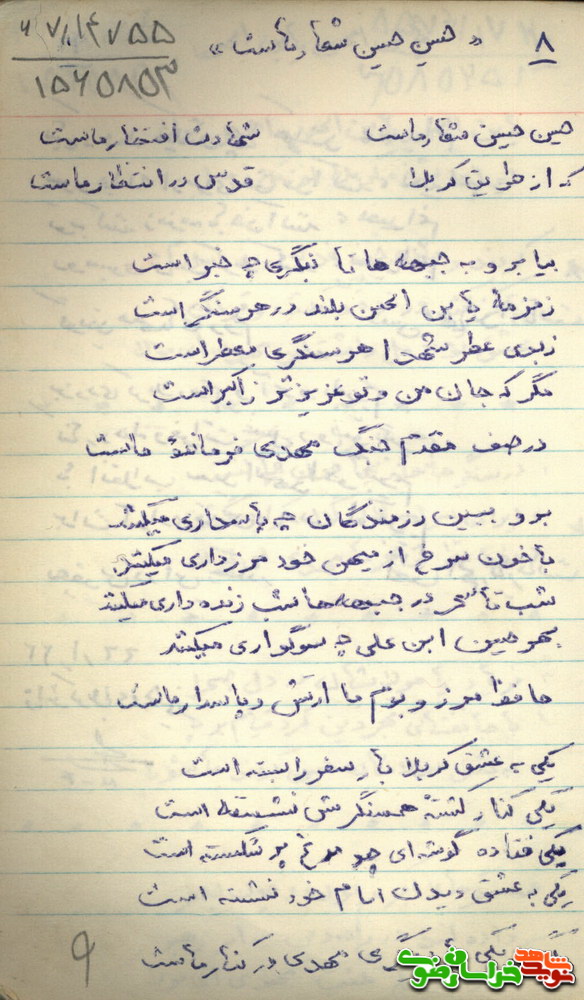 ۶۷/۱۴۷۵۵
۱۵۶۵۸۵۳
۸ « حسین حسین شعار ماست »
حسین حسین شعار ماست شهادت افتخار ماست
که از طریق کربلا قدس در انتظار ماست
بیا برو به جبهه ها تا نبگری چه خبر است
زمزمهٔ یابن الحسن بلند در هر سنگر است
ز بوی عطر شهدا هر سنگری معطر است
مگر که جان من و تو عزیزتر ز اکبر است
در صف مقدم جنگ مهدی فرماندهٔ ماست
برو ببین رزمندگان چه پاسداری میکنند
با خون سرخ از میهن خود مرزداری میکنند
شب تا سحر در جبهه ها شب زنده داری میکنند
بهر حسین ابن علی چه سوگواری میکنند
حافظ مرز و بوم ما ارتش و پاسدار ماست
یکی به عشق کربلا بار سفر را بسته است
یکی کنار کشتهٔ همسنگرش نشسته است
یکی فتاده گوشه ای چو مرغ پر شکسته است
یکی به عشق دیدن امام خود نشسته است
یکی گری مهدی در کنار ماست
۹
نوید شاهد
خراسان رضوی